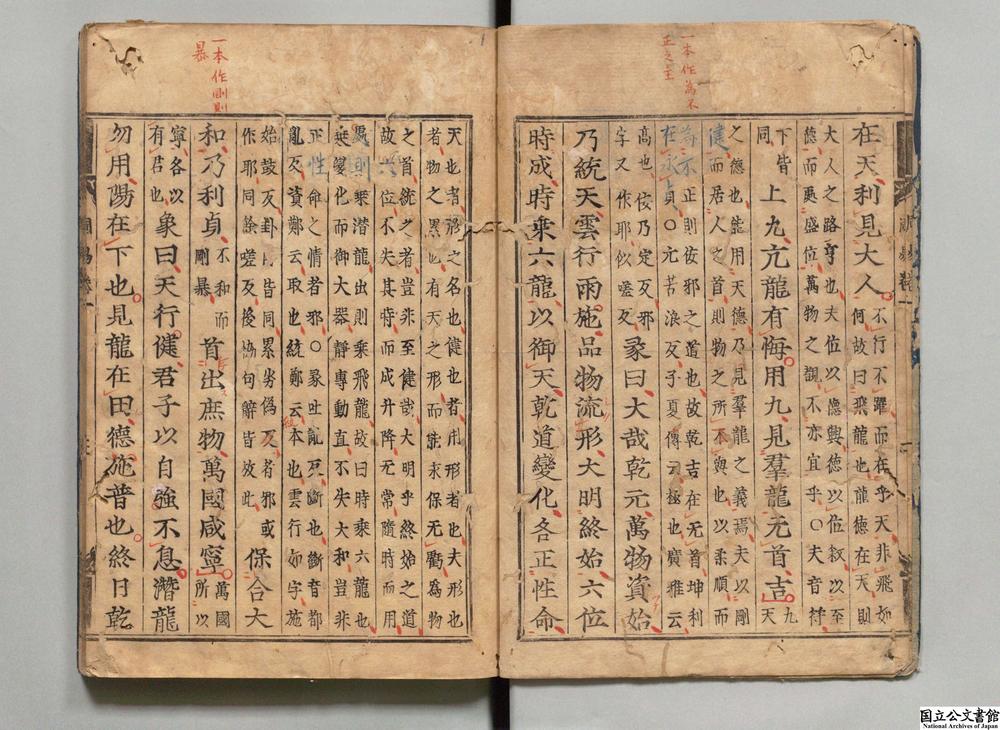 一本作為不
正之主
在天利見大人
不行不躍而在乎天非飛如
何故曰飛龍也龍德在天則
大人之路亨也夫位以德興德以位叙以至
德而處盛位萬物之覩不亦宜乎○夫音符
下皆
同
上九亢龍有悔用九見羣龍无首吉
九
天
之德也能用天德乃見羣龍之義焉夫以剛
健而居人之首則物之所不與也以柔順而
為不正則佞邪之道也故乾吉在无首坤利
在永貞○亢苦浪反子夏傳云極也廣雅云
高也佞乃定反邪
字又作耶似嗟反
彖曰大哉乾元萬物資始
乃統天雲行雨施品物流形大明終始六位
時成時乗六龍以御天乾道變化各正性命
一本作剛則
暴
天也者形之名也健也者用形者也夫形也
者物之累也有天之形而能永保无虧為物
之首統之者豈非至健哉大明乎終始之道
故六位不失其時而成升降无常隨時而用
處則乗潛龍出則乗飛龍故曰時乗六龍也
乗變化而御大器靜專動直不失大和豈非
正性命之情者邪○彖吐亂反斷也斷音都
亂反資鄭云取也統鄭云本也雲行如字施
始豉反卦皆同累劣偽反者邪或
作耶同餘嗟反後協句辭皆放此
保合大
和乃利貞
不和而
剛暴
首出庶物萬國咸寧
萬國
所以
寧各以
有君也
象曰天行健君子以自強不息潛龍
勿用陽在下也見龍在田德施普也終日乾
国立公文書館
National Archives of Japan